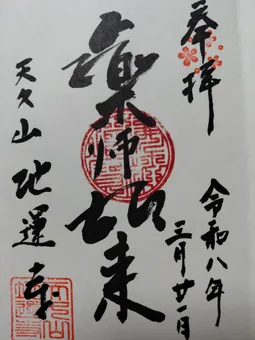 奉拝
令和八年
三月廿一日
藥師如来
天久山
地運寺